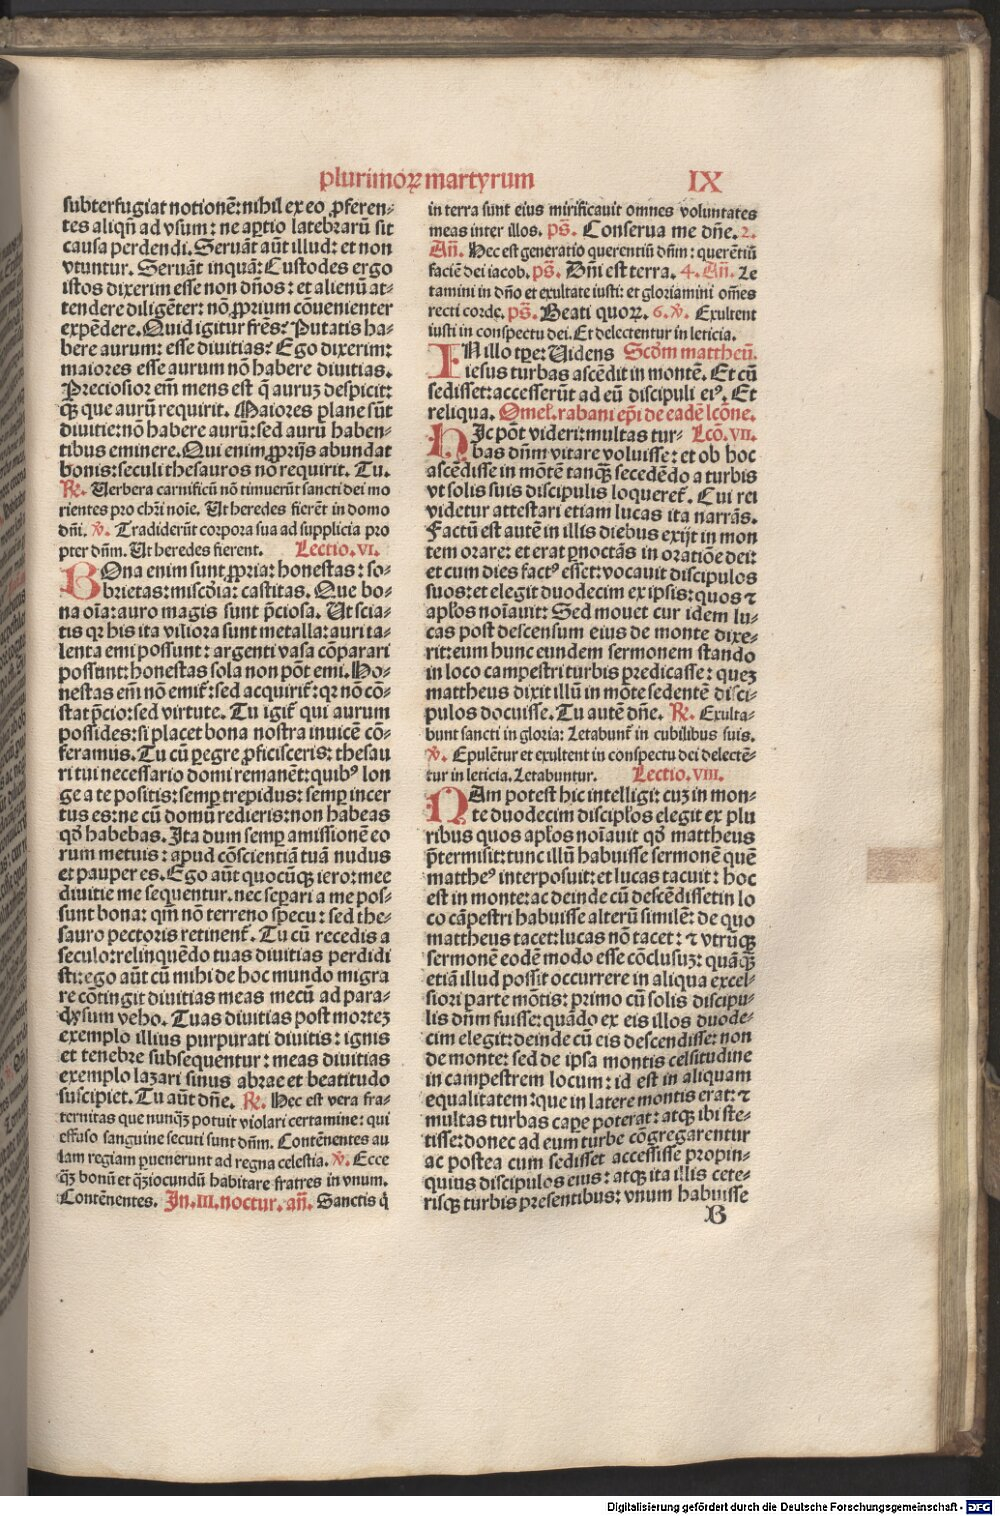 plurimoꝝ martyrum IX
subterfugiat notionē: nihil ex eo ꝓferen-
tes aliqñ ad vsum: ne aꝑtio latebrarū sit
causa perdendi. Seruāt aūt illud: et non
vtuntur. Seruāt inquā: Custodes ergo
istos dixerim esse non dños: et alienū at-
tendere diligēter: nō ꝓprium cōuenienter
expēdere. Quid igitur frēs? Putatis ha-
bere aurum: esse diuitias? Ego dixerim:
maiores esse aurum nō habere diuitias.
Preciosior em̄ mens est q̄ auruꝫ despicit:
ꝙ̄ que aurū requirit. Maiores plane sūt
diuitie: nō habere aurū: sed aurū haben-
tibus eminere. Qui enim ꝓprijs abundat
bonis: seculi thesauros nō requirit. Tu.
℟. Uerbera carnificū nō timuerūt sancti dei mo
rientes pro chr̄i noīe. Ut heredes fierēt in domo
dñi. ℣. Tradiderūt corpora sua ad supplicia pro
pter dñm. Ut heredes fierent. Lectio. VI.
BOna enim sunt ꝓpria: honestas: so-
brietas: mīscōia: castitas. Que bo-
na oīa: auro magis sunt p̄ciosa. Ut scia-
tis qꝛ his ita viliora sunt metalla: auri ta-
lenta emi possunt: argenti vasa cōparari
possunt: honestas sola non pōt emi. Ho-
nestas em̄ nō emit̄: sed acquirit̄: qꝛ nō cō-
stat p̄cio: sed virtute. Tu igit̄ qui aurum
possides: si placet bona nostra inuicē cō-
feramus. Tu cū ꝑegre ꝓficisceris: thesau
ri tui necessario domi remanēt: quibꝰ lon
ge a te positis: semꝑ trepidus: semꝑ incer
tus es: ne cū domū redieris: non habeas
qđ habebas. Ita dum semꝑ amissionē eo
rum metuis: apud cōscientiā tuā nudus
et pauper es. Ego aūt quocūꝙ iero: mee
diuitie me sequentur. nec seꝑari a me pos-
sunt bona: qm̄ nō terreno specu: sed the-
sauro pectoris retinent̄. Tu cū recedis a
seculo: relinquēdo tuas diuitias perdidi
sti: ego aūt cū mihi de hoc mundo migra
re cōtingit diuitias meas mecū ad para-
dysum veho. Tuas diuitias post morteꝫ
exemplo illius purpurati diuitis: ignis
et tenebre subsequentur: meas diuitias
exemplo lazari sinus abrae et beatitudo
suscipiet. Tu aūt dñe. ℟. Hec est vera fra-
ternitas que nunꝙ̄ potuit violari certamine: qui
effuso sanguine secuti sunt dñm. Contēnentes au
lam regiam ꝑuenerunt ad regna celestia. ℣. Ecce
ꝙ̄ bonū et ꝙ̄ iocundū habitare fratres in vnum.
Contēnentes. In. III. noctur. añ. Sanctis q̄
in terra sunt eius mirificauit omnes voluntates
meas inter illos. ps̄. Conserua me dñe. 2.
Añ. Hec est generatio querentiū dñm: querētiū
faciē dei iacob. ps̄. Dñi est terra. 4. Añ. Le
tamini in dño et exultate iusti: et gloriamini oēs
recti corde. ps̄. Beati quoꝝ. 6. ℣. Exultent
iusti in conspectu dei. Et delectentur in leticia.
IN illo tꝑe: Uidens Scđm mattheū.
iesus turbas ascēdit in montē. Et cū
sedisset: accesserūt ad eū discipuli eiꝰ. Et
reliqua. Omeł. rabani ep̄i de eadē lc̄ōne.
HIc pōt videri: multas tur- Lc̄ō. VII.
bas dñm vitare voluisse: et ob hoc
ascēdisse in mōtē tanꝙ̄ secedēdo a turbis
vt solis suis discipulis loqueret̄. Cui rei
videtur attestari etiam lucas ita narrās.
Factū est autē in illis diebus exijt in mon
tem orare: et erat ꝑnoctās in oratiōe dei:
et cum dies factꝰ esset: vocauit discipulos
suos: et elegit duodecim ex ipsis: quos ⁊
apłos noīauit: Sed mouet cur idem lu-
cas post descensum eius de monte dixe-
rit: eum hunc eundem sermonem stando
in loco campestri turbis predicasse: queꝫ
mattheus dixit illū in mōte sedentē disci-
pulos docuisse. Tu autē dñe. ℟. Exulta-
bunt sancti in gloria: Letabunt̄ in cubilibus suis.
℣. Epulētur et exultent in conspectu dei delectē-
tur in leticia. Letabuntur. Lectio. VIII.
NAm potest hic intelligi: cuꝫ in mon-
te duodecim discipłos elegit ex plu
ribus quos apłos noīauit qđ mattheus
p̄termisit: tunc illū habuisse sermonē quē
mattheꝰ interposuit: et lucas tacuit: hoc
est in monte: ac deinde cū descēdisset in lo
co cāpestri habuisse alterū similē: de quo
mattheus tacet: lucas nō tacet: ⁊ vtrūꝙ
sermonē eodē modo esse cōclusuꝫ: quāꝙ̄
etiā illud possit occurrere in aliqua excel-
siori parte mōtis: primo cū solis discipu-
lis dñm fuisse: quādo ex eis illos duode-
cim elegit: deinde cū eis descendisse: non
de monte: sed de ipsa montis celsitudine
in campestrem locum: id est in aliquam
equalitatem: que in latere montis erat: ⁊
multas turbas capere poterat: atꝙ ibi ste-
tisse: donec ad eum turbe cōgregarentur
ac postea cum sedisset accessisse propin-
quius discipulos eius: atꝙ ita illis cete-
risꝙ turbis presentibus: vnum habuisse
B
Digitalisierung gefördert durch die Deutsche Forschungsgemeinschaft - DFG